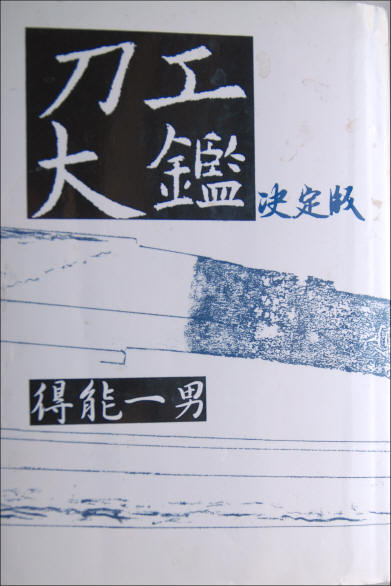 刀工
大鑑
決定版
得能一男